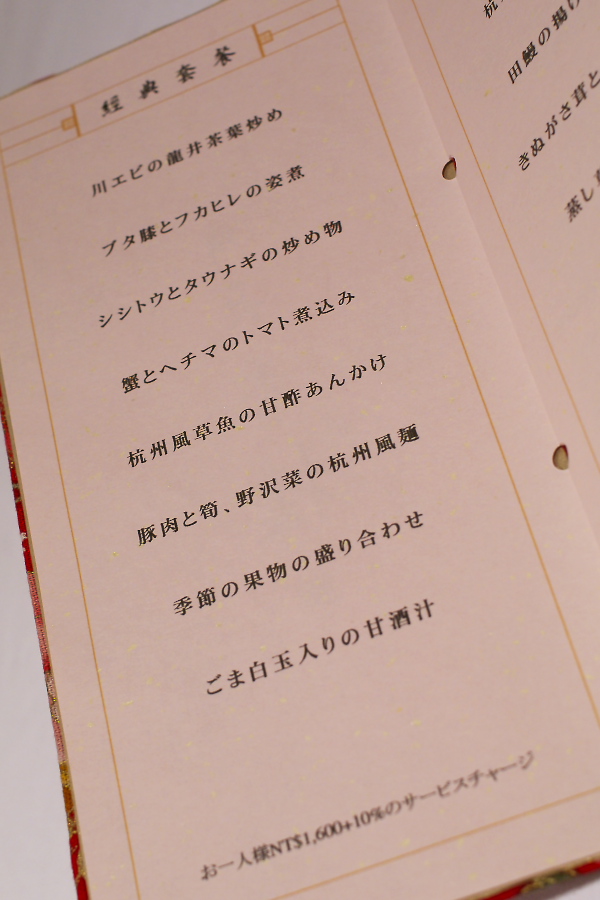 經典套餐
川エビの龍井茶葉炒め
ブタ膝とフカヒレの姿煮
シシトウとタウナギの炒め物
蟹とヘチマのトマト煮込み
杭州風草魚の甘酢あんかけ
豚肉と筍、野沢菜の杭州風麺
季節の果物の盛り合わせ
ごま白玉入りの甘酒汁
お一人様NT$1,600+10%のサービスチャージ
杭
田鰻の揚げ
きぬがさ茸と
蒸し